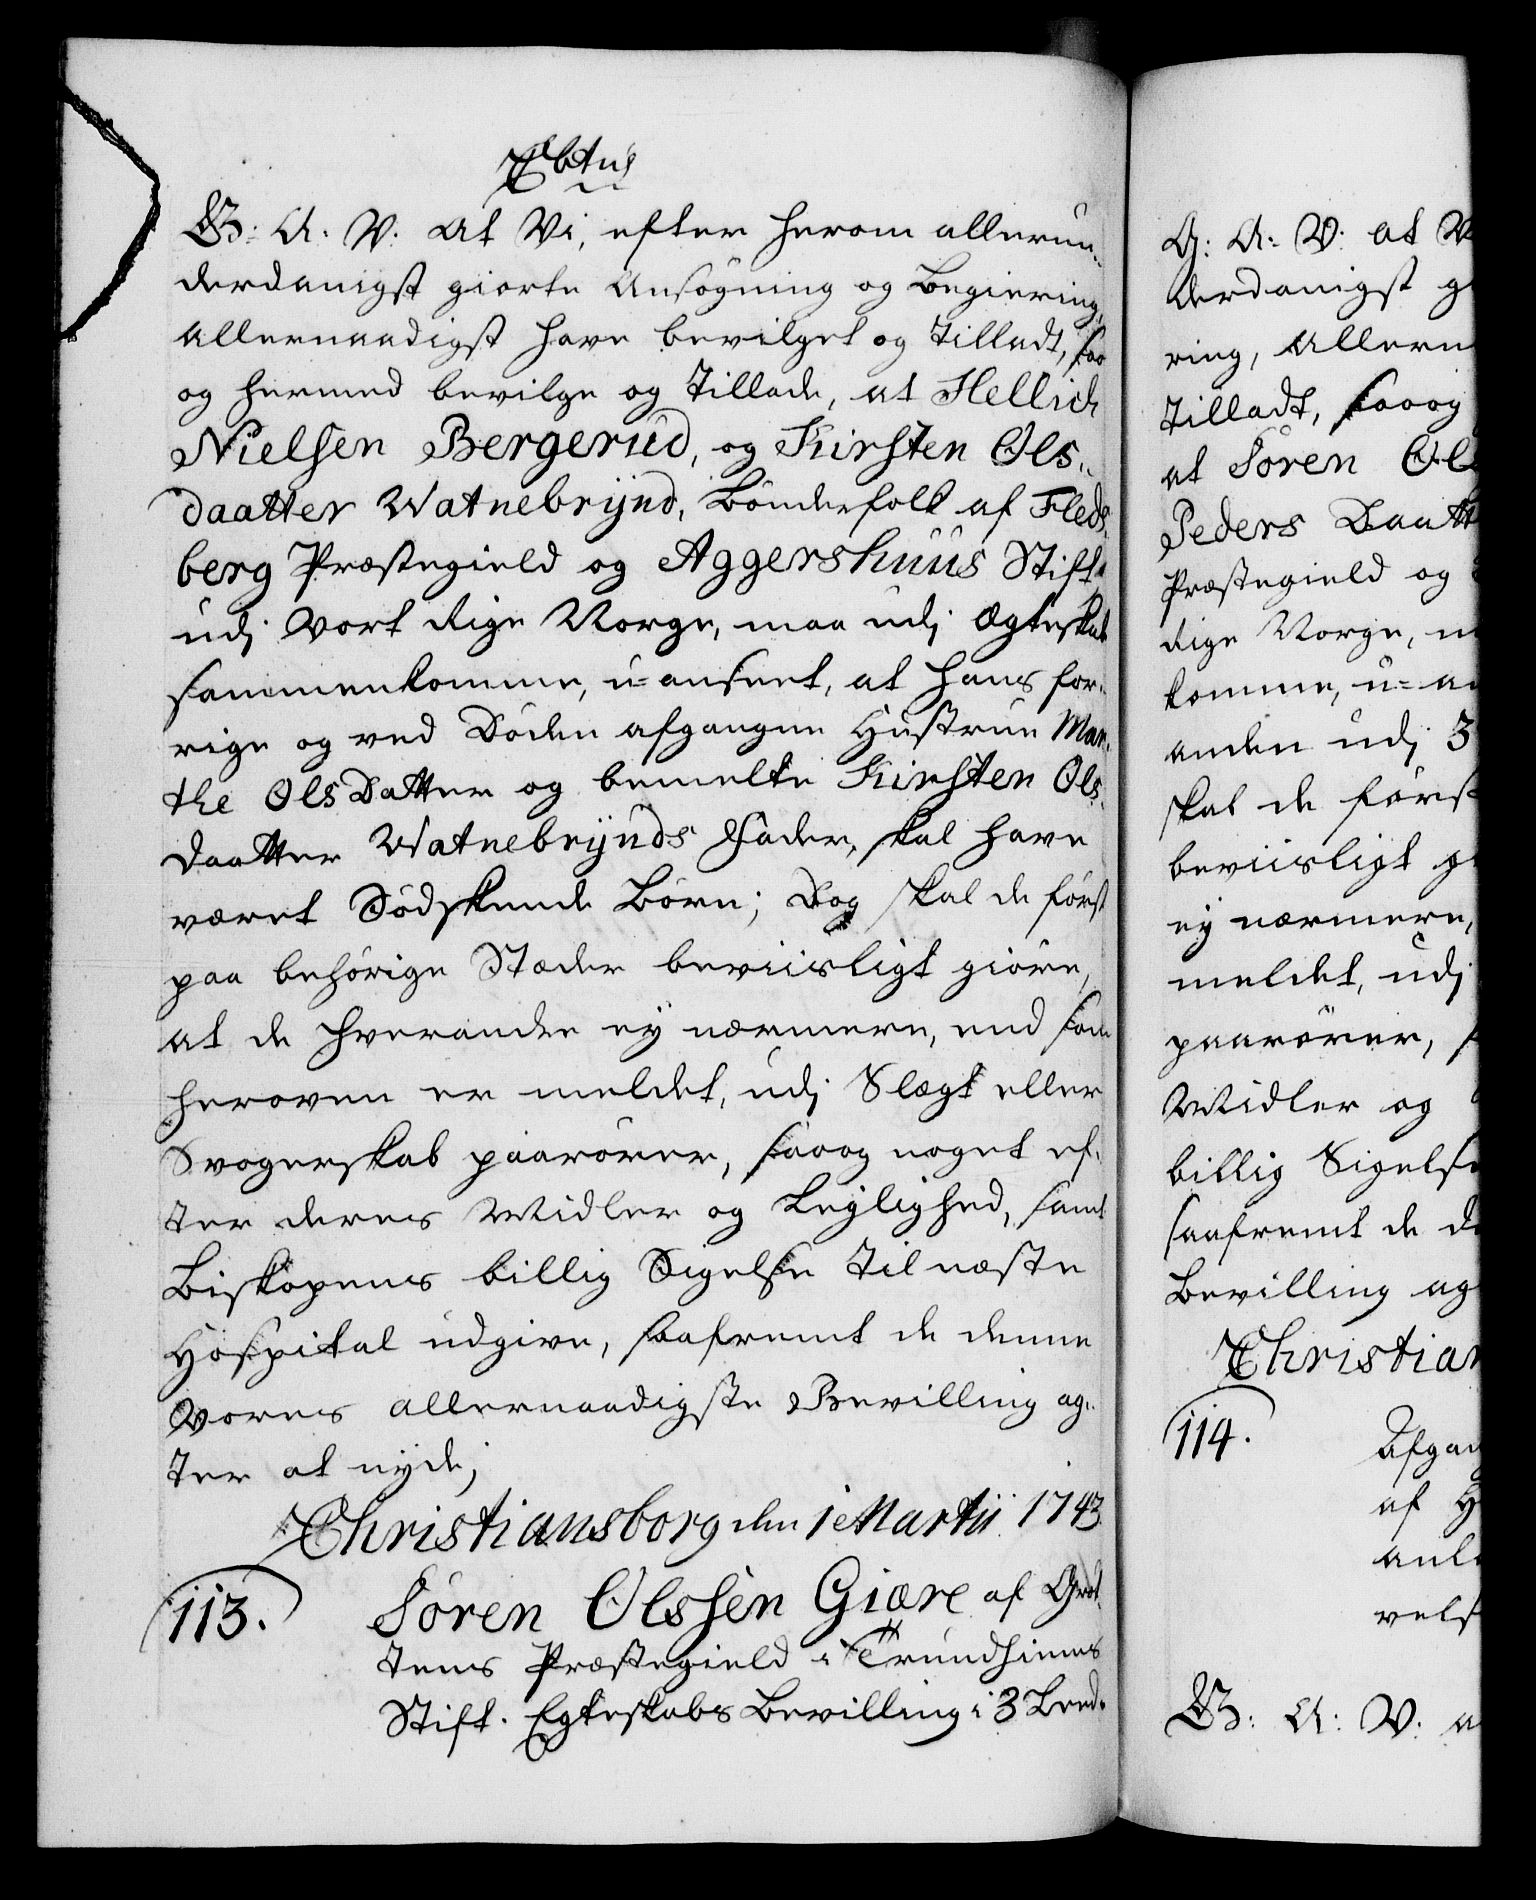 G: A. V. At Vi, efter herom allerun-
derdanigst giorte Ansøgning og Begiering,
allernaadigst have bevilget og tilladt, saa
og hermed bevilge og tillade, at Hellich
Nielsen Bergerud, og Kirsten Ols-
daatter Watnebrÿnd, Bønderfolk af Fleds-
berg Præstegield og Aggershuus Stift
udj Vort Rige Norge, maa udj Ægteskab
sammenkomme, u-anseet, at hans for-
rige og ved Døden afgangne Hustrue Mar-
the OlsDatter og bemelte Kirsten Ols-
daatter Watnebrÿnds Fader, skal have
været Sødskende Børn; Dog skal de først
paa behørige Stæder beviisligt giøre,
at de hverandre ey nærmere, end som
heroven er meldet, udj Slægt eller
Svogerskab paarører, saaog noget ef-
ter deres Midler og Leylighed, samt
Biskopens billig Sigelse til næste
Hospital udgive, saafremt de denne
Vores allernaadigste Bevilling ag-
ter at nyde;
Christiansborg den 1 Martii 1743
113. Søren Olssen Giære af
tens Præstegield i Trundhiems
Stift. Egteskabs Bevilling i 3 Leed.
G: A: V: at V
derdanigst g
ring, Allern
tilladt, saaog
at Søren Ol
Peders Daatt
Præstegield og
Rige Norge, m
komme, u-an
anden udj 3
skal de først
beviisligt g
ey nærmere,
meldet, udj
paarører, s
Midler og
billig Sigelse
saafremt de d
Bevilling ag
Christian
114. Afgan
af H
anl
vels
G: A: V. a